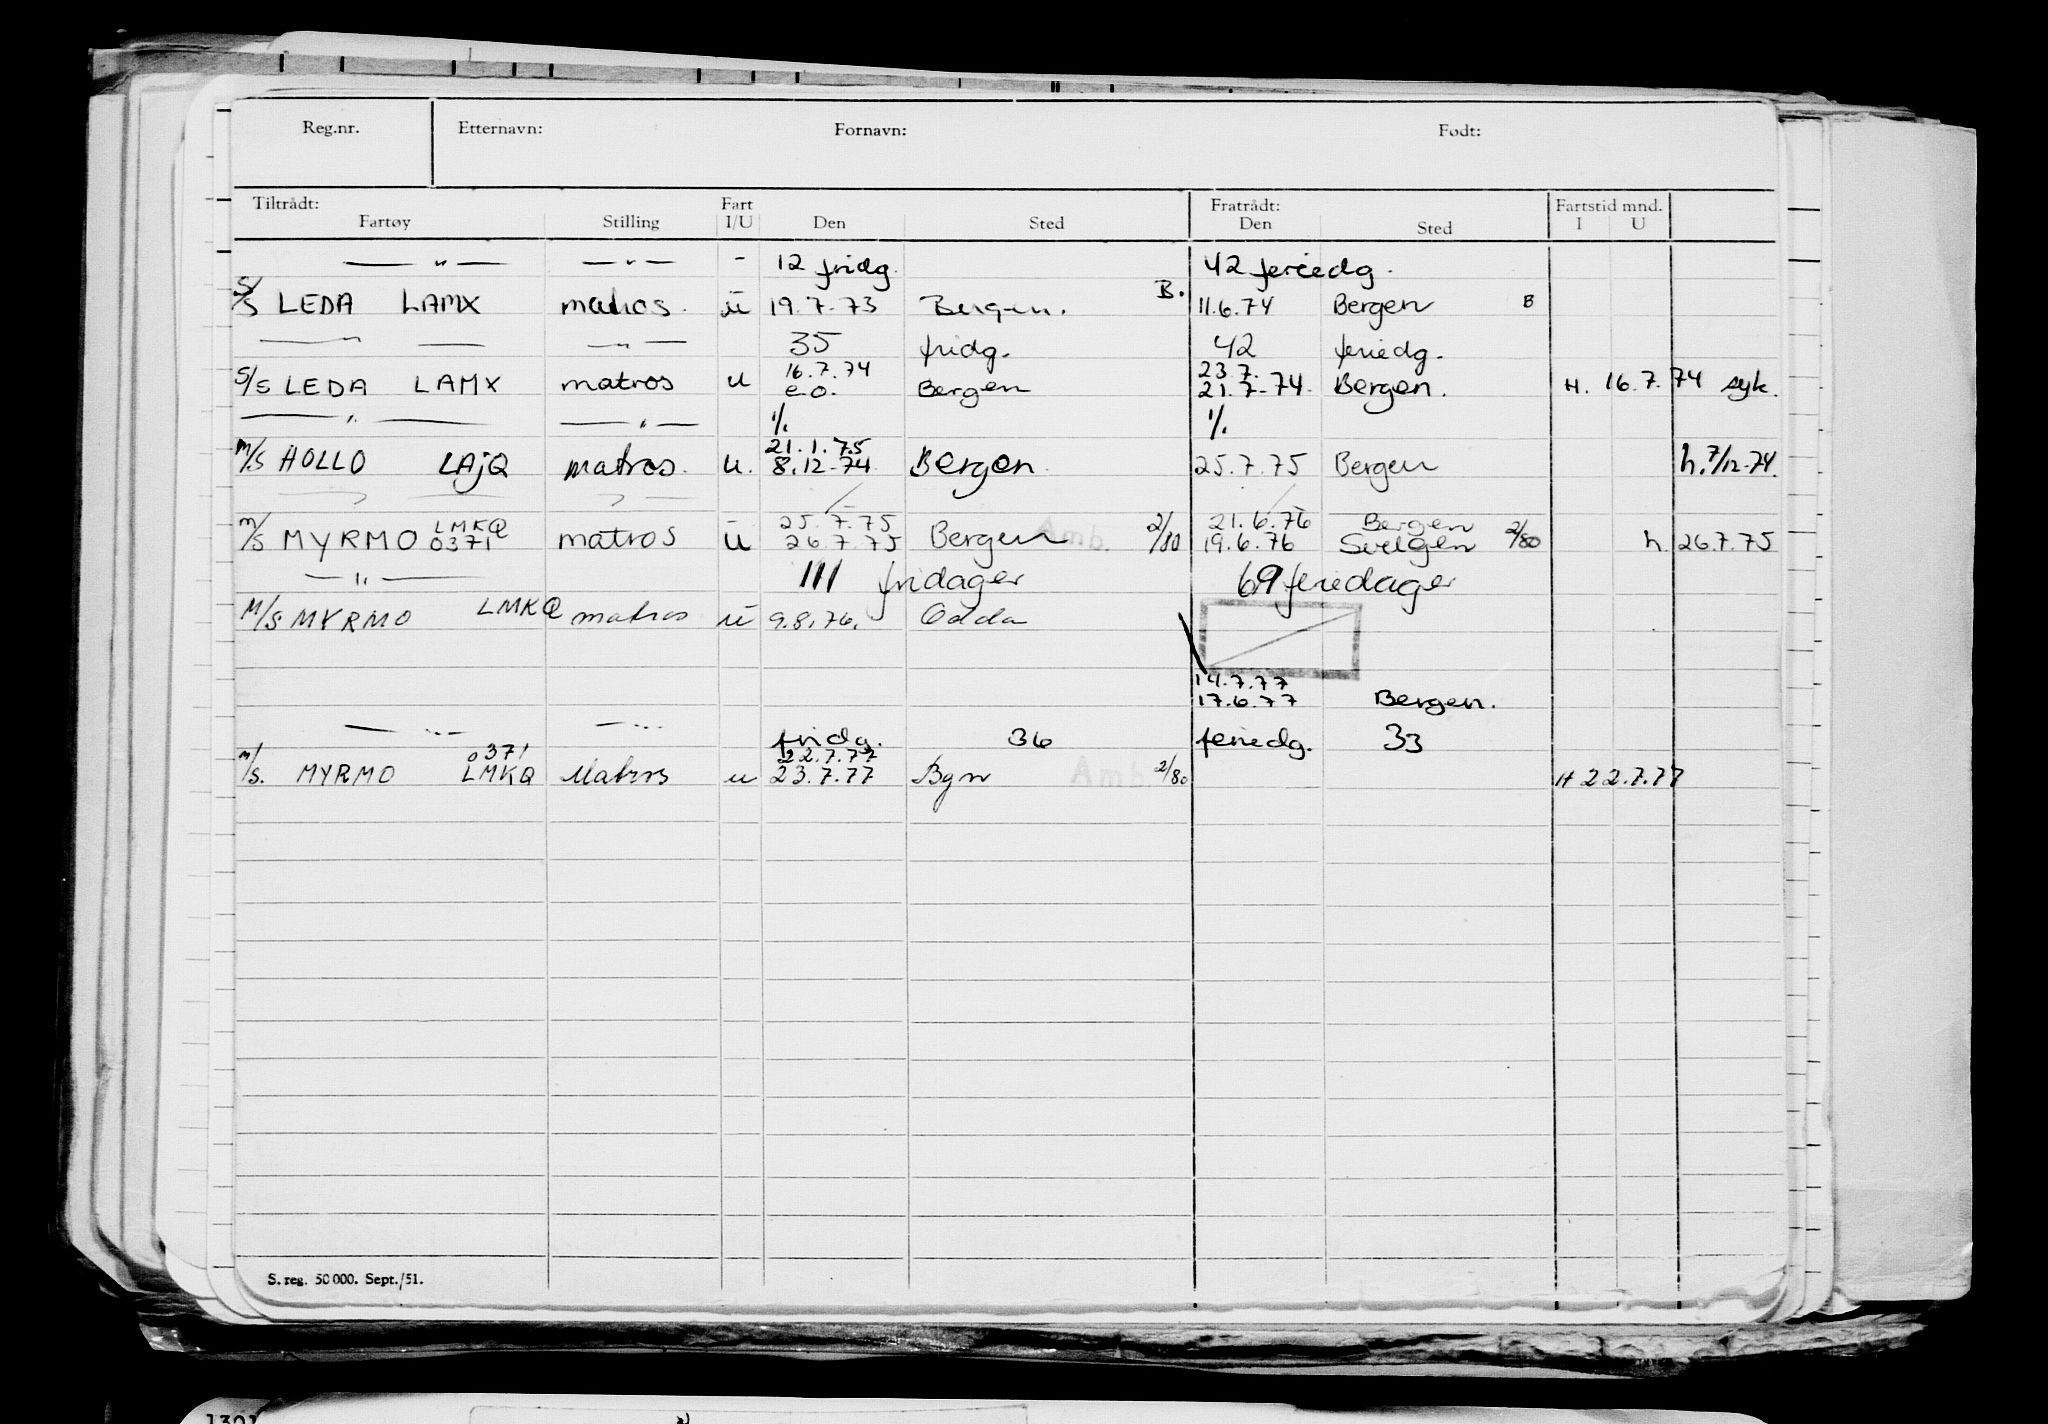 Reg.nr. Etternavn: Fornavn: Født:
Tiltrådt: Fart Fratrådt: Fartstid mnd.
Fartøy Stilling I/U Den Sted Den Sted I U
— " — — " — - 12 fridg. 42 feriedg.
S/S LEDA LAMX matros. u 19.7.73 Bergen. B. 11.6.74 Bergen B
— " — — " — 35 fridg. 42 feriedg.
16.7.74 23.7.
S/S LEDA LAMX matros u e.o. Bergen 21.7-74. Bergen. H. 16.7.74 syk.
— " — — " — 1/. 1/.
21.1.75
M/S HOLLO LAJQ matros. u. 8.12-74 Bergen 25.7.75 Bergen h. 7/12-74.
LMKQ 25.7.75 21.6.76 Bergen
M/S MYRMO 0371 matros u 26.7.75 Bergen Amb. 2/80 19.6.76 Svelgen 2/80 h. 26.7.75
— " — 111 fridager 69 feriedager
M/S MYRMO LMKQ matros u 9.8.76. Odda
14.7.77
17.6.77 Bergen.
— " — — " — fridg. 36 feriedg. 33
0371 22.7.77
M/S. MYRMO LMKQ Matros u 23.7.77 Bgn Amb. 2/80 H 22.7.77
S. reg. 50 000. Sept./51.